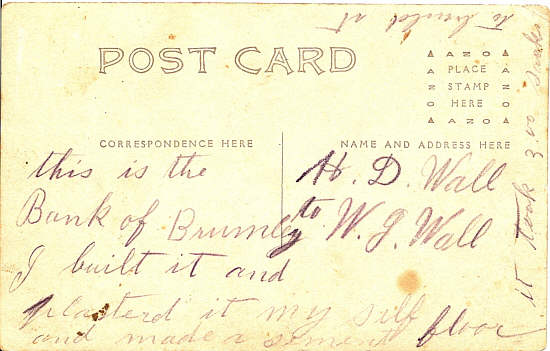 POST CARD
AZNO
PLACE
STAMP
HERE
AZNO
CORRESPONDENCE HERE
NAME AND ADDRESS HERE
this is the
Bank of Brumley
I built it and
plasterd it my self
and made a sement floor
H. D. Wall
to W. J. Wall
it took 3.00
to build it